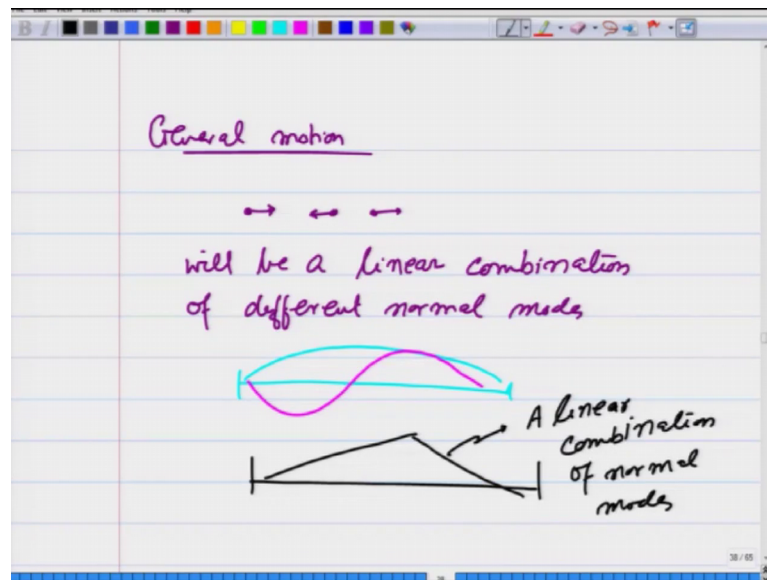 B I
General motion
will be a linear combination
of different normal modes
A linear
combination
of normal
modes
38 / 65